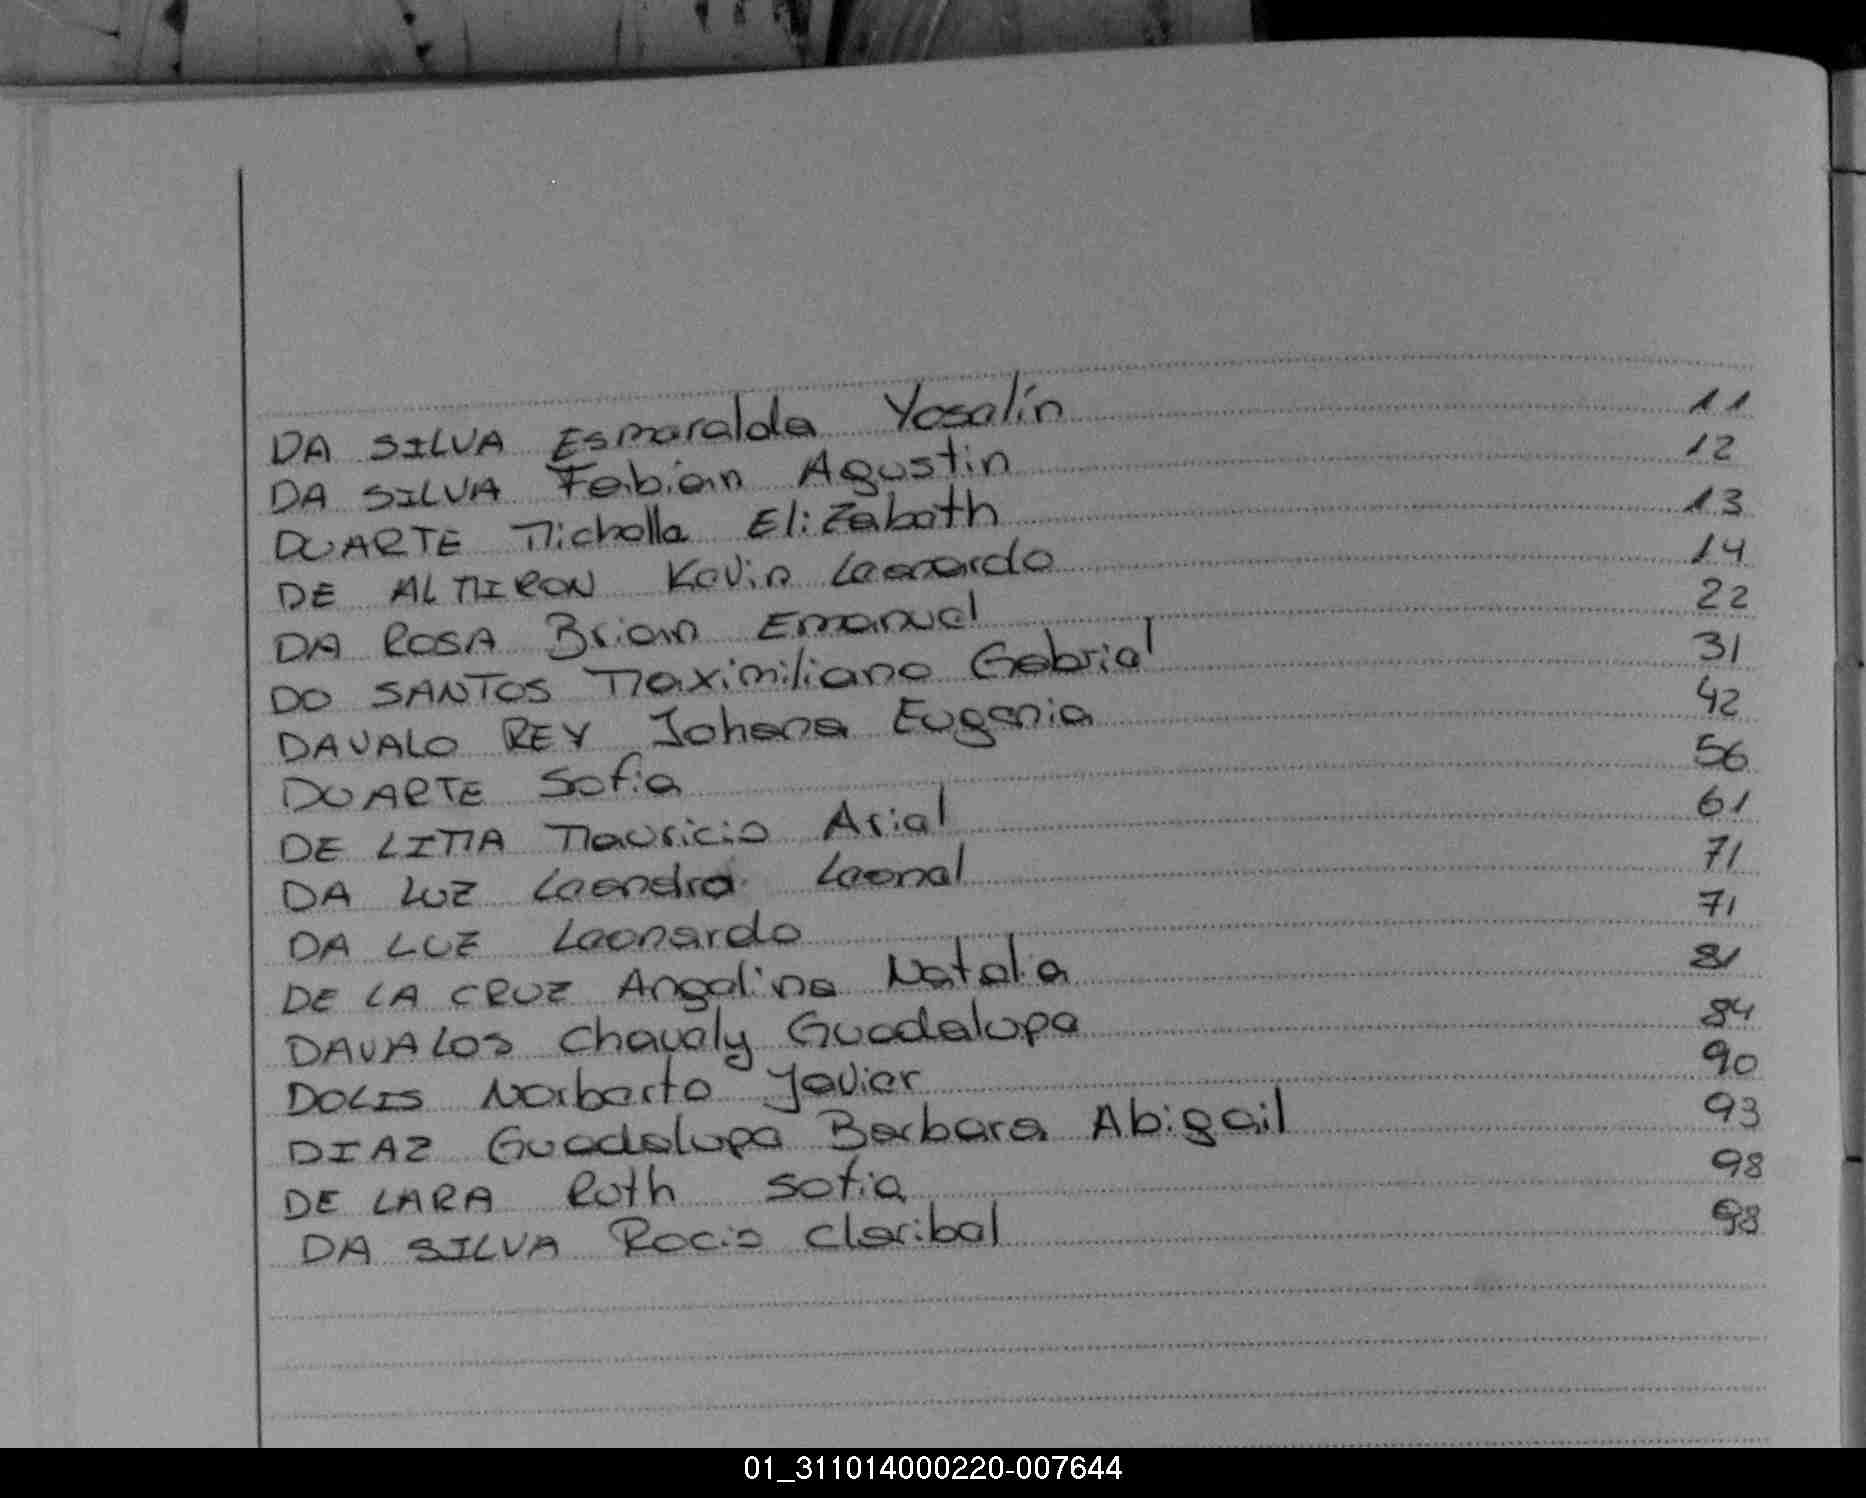 DA SILVA Esmeralda Yoselín 11
DA SILVA Fabián Agustin 12
DUARTE Michelle Elizabeth 13
DE ALMIRON Kevin Leonardo 14
DA ROSA Brian Emanuel 22
DO SANTOS Maximiliano Gabriel 31
DAVALO REY Johana Eugenia 42
DUARTE Sofia 56
DE LIMA Mauricio Ariel 61
DA LUZ Leandro Leonel 71
DA LUZ Leonardo 71
DE LA CRUZ Angelina Natalia 81
DAVALOS Chavely Guadalupe 84
DOLIS Norberto Javier 90
DIAZ Guadalupe Barbara Abigail 93
DE LARA Ruth Sofia 98
DA SILVA Rocio Claribel 98
01_311014000220-007644